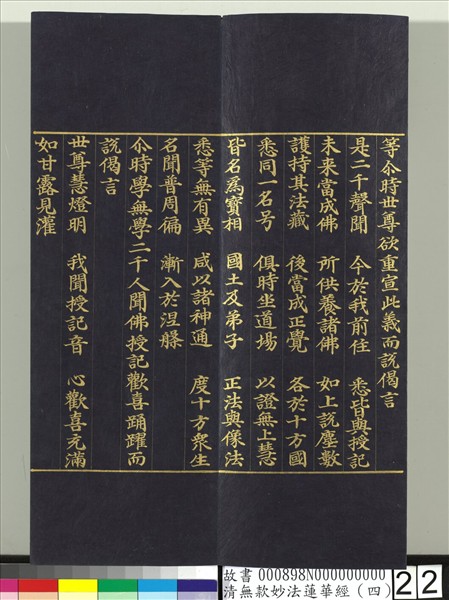 等尒時世尊欲重宣此義而說偈言
是二千聲聞 今於我前住 悉皆與授記
未来當成佛 所供養諸佛 如上說塵數
護持其法藏 後當成正覺 各於十方國
悉同一名号 俱時坐道場 以證無上慧
皆名為寶相 國土及弟子 正法與像法
悉等無有異 咸以諸神通 度十方眾生
名聞普周徧 漸入於涅槃
尒時學無學二千人聞佛授記歡喜踊躍而
說偈言
世尊慧燈明 我聞授記音 心歡喜充滿
如甘露見灌
故書 000898N000000000
清無款妙法蓮華經(四)
22